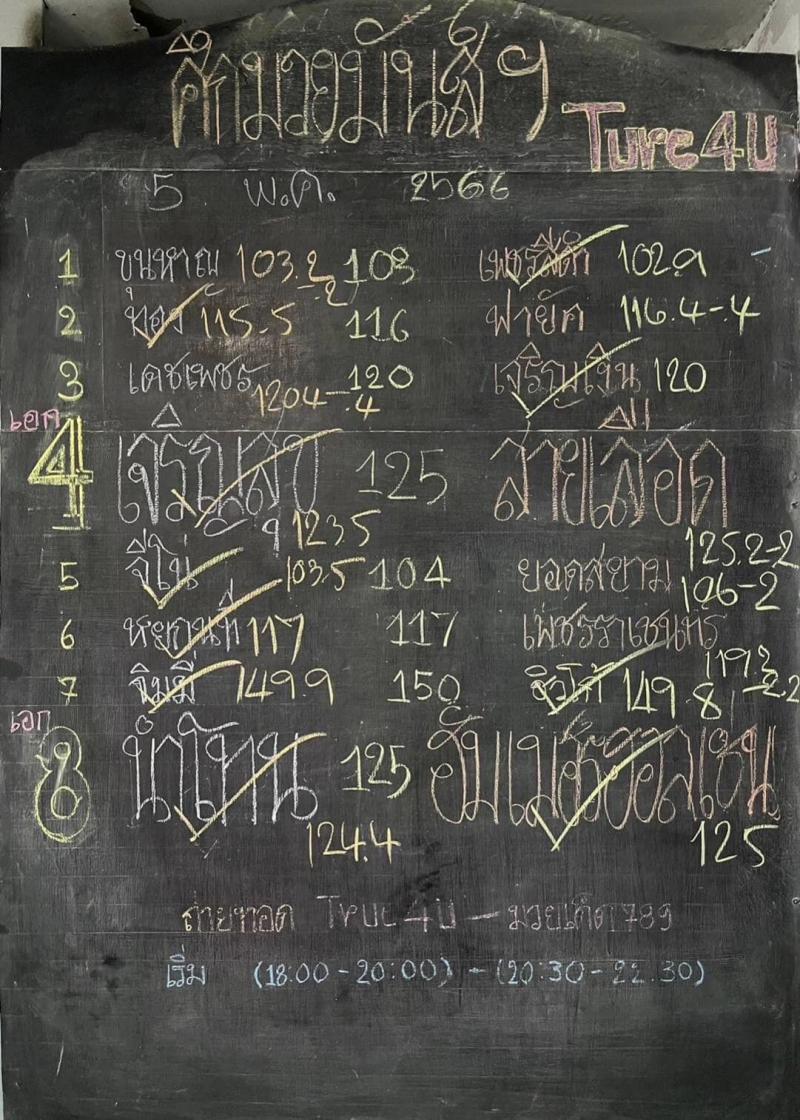 ศึกมวยมันส์ ๆ
Ture4U
5 พ.ค. 2566
1 ขุนหาญ 103.2 -.2 103 102.9
2 115.5 116 ฟายัค 116.4-.4
3 เดชเพชร 120.4-.4 120 เจริญเงิน 120
เอก
4 เจริญสุข 123.5 125 สายเลือด 125.2-.2
5 จีโน่ 103.5 104 ยอดสยาม 106-2
6 หยกนที 117 117 เพชรราเชนทร์ 119.2-2.2
7 จิมมี่ 149.9 150 149.8
เอก
8 นำโทน 124.4 125 125
ถ่ายทอด True4U - มวยเด็ด789
เริ่ม (18:00-20:00) - (20:30-22.30)